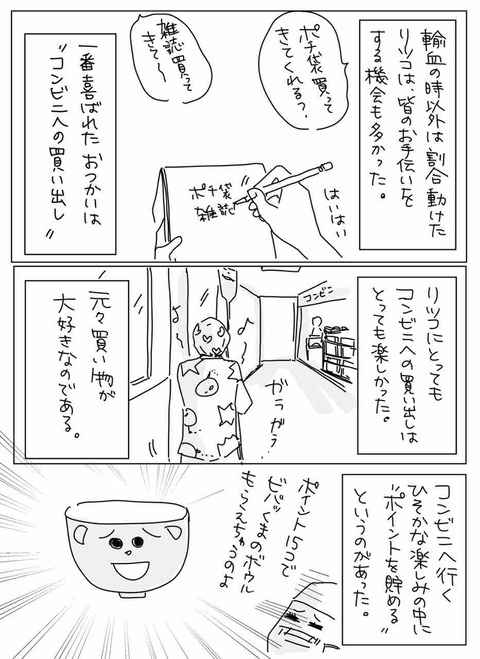 輸血の時以外は割合動けた
リツコは、皆のお手伝いを
する機会も多かった。
ポチ袋買って
きてくれる?
雑誌買って
きて〜
ポチ袋
雑誌
はいはい
一番喜ばれたおつかいは
"コンビニへの買い出し"
リツコにとっても
コンビニへの買い出しは
とっても楽しかった。
コンビニ
ガラガラ
元々買い物が
大好きなのである。
コンビニへ行く
ひそかな楽しみの中に
"ポイントを貯める"
というのがあった。
ポイント15コで
ビバッくまのボウル
もらえちゃうのよ